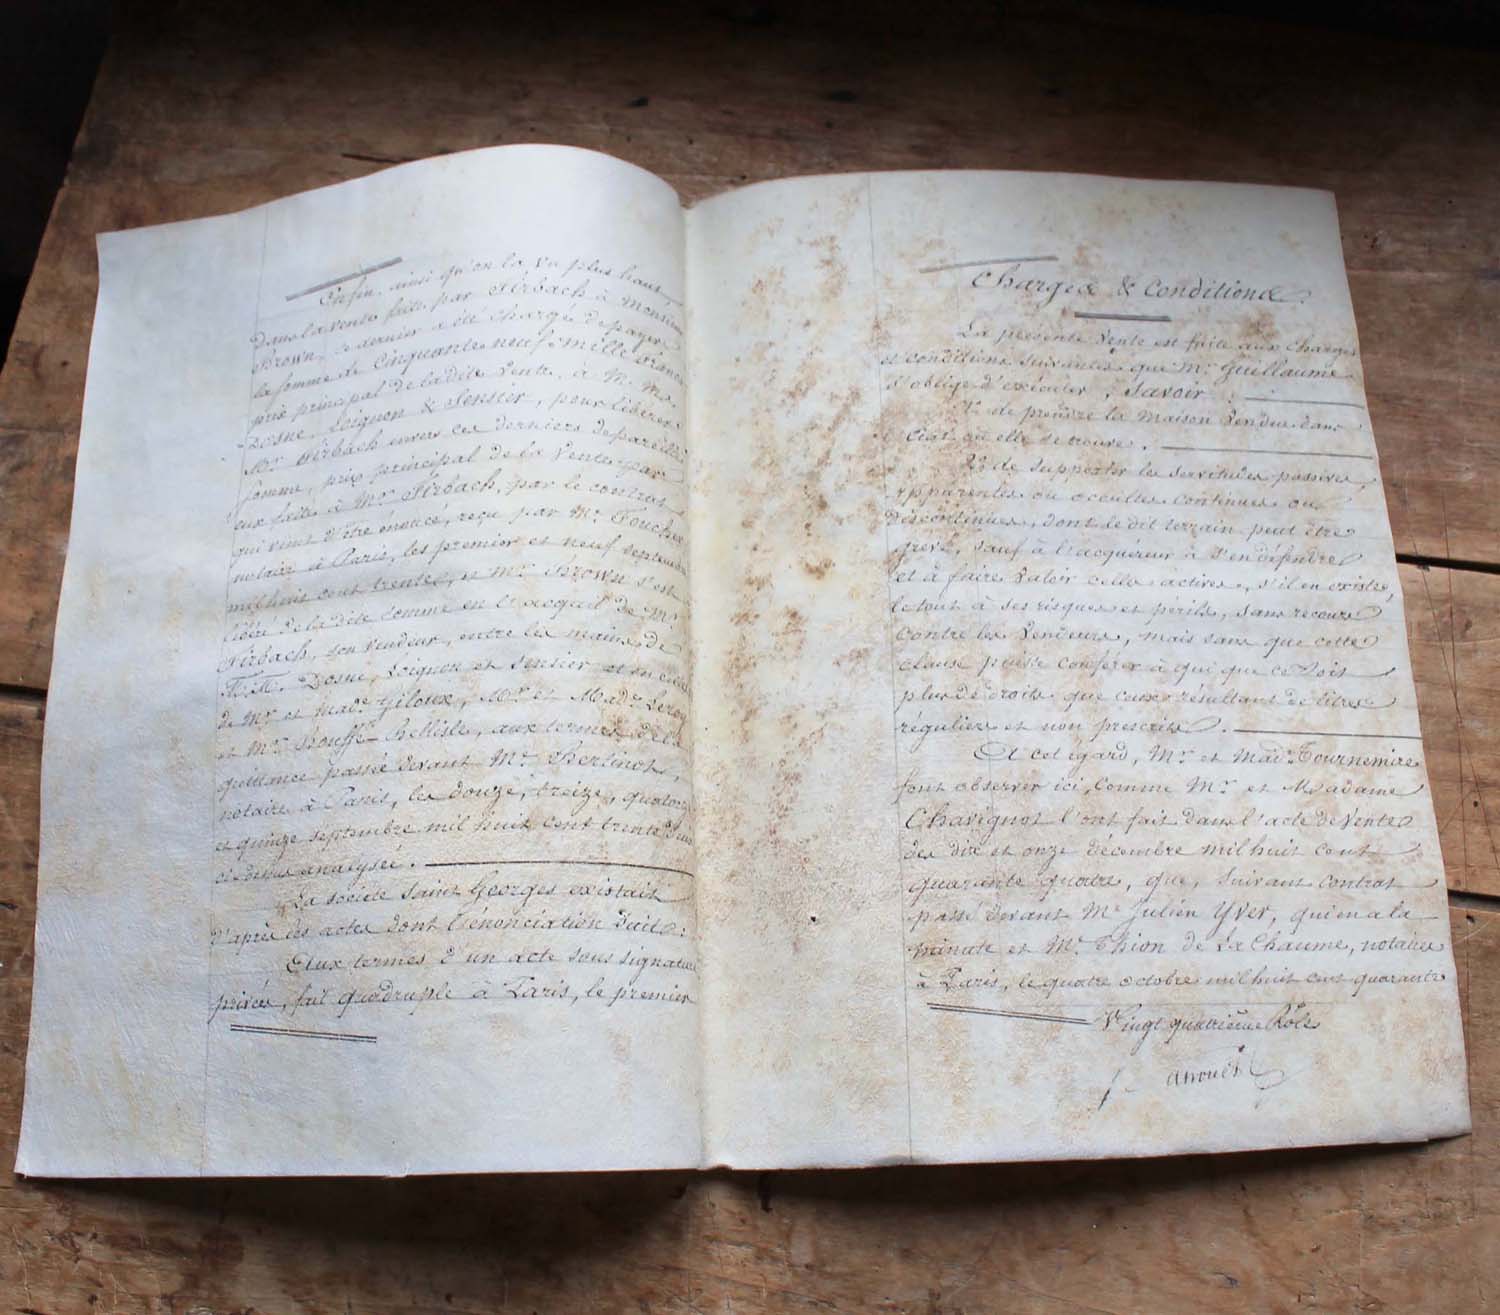 Enfin, ainsi qu'on l'a vu plus haut,
dans la vente faite par Firbach à Monsieur
Brown, ce dernier a été chargé de payer
la somme de Cinquante neuf mille francs
prix principal de ladite vente, à M. M.
Dosne, Loignon & Sensier, pour libérer
Mr. Firbach envers ces derniers de pareille
somme, prix principal de la Vente par
eux faite à Mr Firbach, par le contrat
qui vient d'être énoncé, reçu par Me. Touchet
notaire à Paris, les premier et neuf septembre
mil huit cent trente, et Mr. Brown s'est
libéré de ladite somme en l'acquit de Mr
Firbach, son vendeur, entre les mains de
M. M. Dosne, Loignon et Sensier et en celles
de Mr et Made Giloux, Mr. et Made Leroy
et Mr. Bellisle, aux termes de la
quittance passée devant Me. Bertinot,
notaire à Paris, les douze, treize, quatorze
et quinze septembre mil huit cent trente deux
ci-dessus analysée.
La société Saint Georges existait
d'après les actes dont l'énonciation suit:
Aux termes d'un acte sous signature
privée, fait quadruple à Paris, le premier
Charges & Conditions.
La présente Vente est faite aux charges
et conditions suivantes que Mr. Guillaume
s'oblige d'exécuter, Savoir:
1o. de prendre la maison vendue dans
l'état où elle se trouve.
2o de supporter les servitudes passives,
apparentes ou occultes, continues ou
discontinues, dont ledit terrain peut être
grevé, sauf à l'acquéreur à s'en défendre
et à faire valoir celles actives, s'il en existe,
le tout à ses risques et périls, sans recours
contre les vendeurs, mais sans que cette
clause puisse conférer à qui que ce soit
plus de droits que ceux résultant de titres
réguliers et non prescrits.
A cet égard, Mr. et Made Tournemire
font observer ici, comme Mr. et Madame
Chavignot l'ont fait dans l'acte de vente
des dix et onze décembre mil huit cent
quarante quatre, que, suivant contrat
passé devant Me Julien Yver, qui en a la
minute et Me. Thion de la Chaume, notaires
à Paris, le quatre octobre mil huit cent quarante
Vingt quatrième Rôle